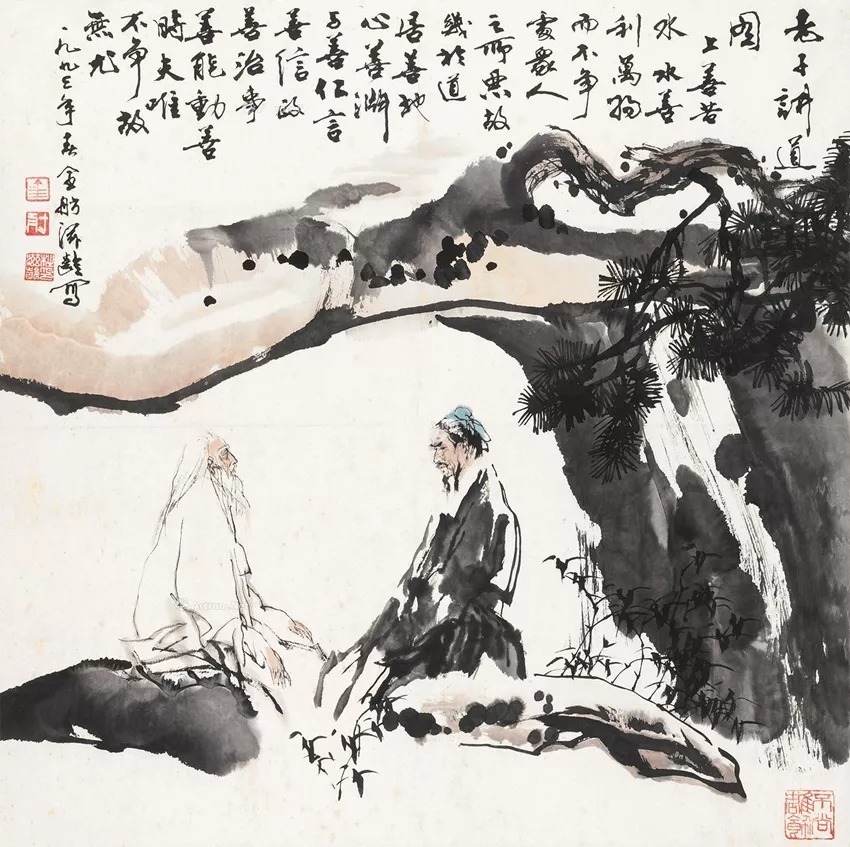 老子講道
圖
上善若
水水善
利萬物
而不争
處眾人
之所惡故
幾於道
居善地
心善渊
与善仁言
善信政
善治事
善能動善
時夫唯
不争故
無尤
一九九三年春金舫寫
Artron.Net